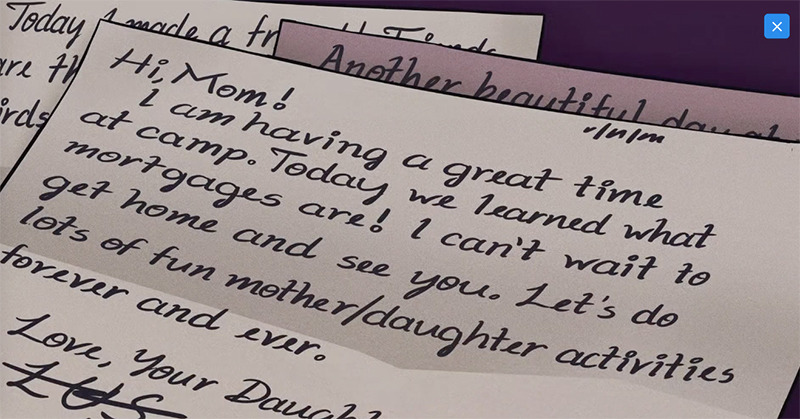 Today I made a fr
are th
irds
Another beautiful daugh
Hi, Mom!
I am having a great time
at camp. Today we learned what
mortgages are! I can't wait to
get home and see you. Let's do
lots of fun mother/daughter activities
forever and ever.
Love, your Daught